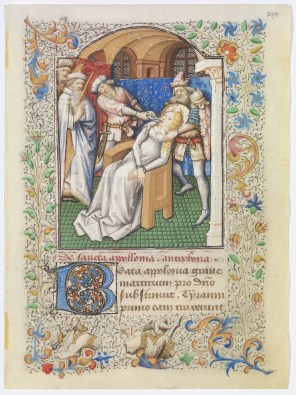 De sancta appollonia. antiphona.
Beata apolonia grave
martirium pro dno
sustinuit. Tyranni
primo eam